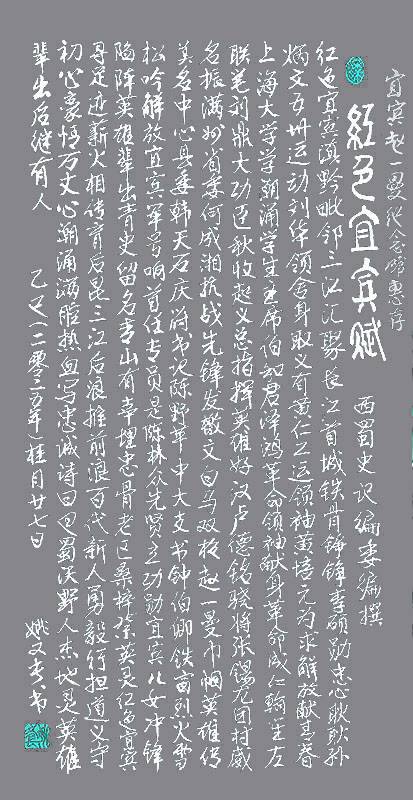 宜宾赵一曼纪念馆惠存
红色宜宾赋
西蜀史记编委编撰
红色宜宾滇黔毗邻三江汇聚长江首城铁骨铮锋李硕勋忠心耿耿孙
炳文五卅运动刘华领舍身取义有黄仁工运领袖黄悟元为求解放献青春
上海大学学潮涌学生主席伯知君泽鸿革命领袖献身革命成仁翰笙左
联笔刘鼎大功臣秋收起义总指挥英雄好汉卢德铭骁将张锡龙团村威
名振满州省委何成湘抗战先锋发檄文白马双枪赵一曼巾帼英雄传
美名中心县委韩天石庆符书记陈野苹中大支书钟伯卿铁窗烈火雪
松吟解放宜宾军号响首任专员是陈林众先贤立功勋宜宾儿女冲锋
陷阵英雄辈出青史留名青山有幸埋忠骨老区桑梓祭英灵红色宜宾
寻足迹薪火相传育后昆三江后浪推前浪百代新人勇毅行担道义守
初心豪情万丈心潮涌满腔热血写忠诚诗曰曰蜀沃野人杰地灵英雄
辈出后继有人
乙巳(二零二五年)桂月廿七日
姚又  书